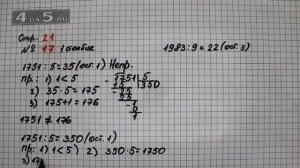 4DA5.RU
Стр. 21
№ 17 1 столбик
1983:9=22 (ост. 3)
1751:5=35 (ост. 1) Непр.
пр.: 1) 1<5
2) 35·5=175
3) 175+1=176
1751 | 5
15 | 350
25
25
1
0
1
1751≠176
1751:5=350 (ост. 1)
пр: 1) 1<5) 2) 350·5=1750
3) 17